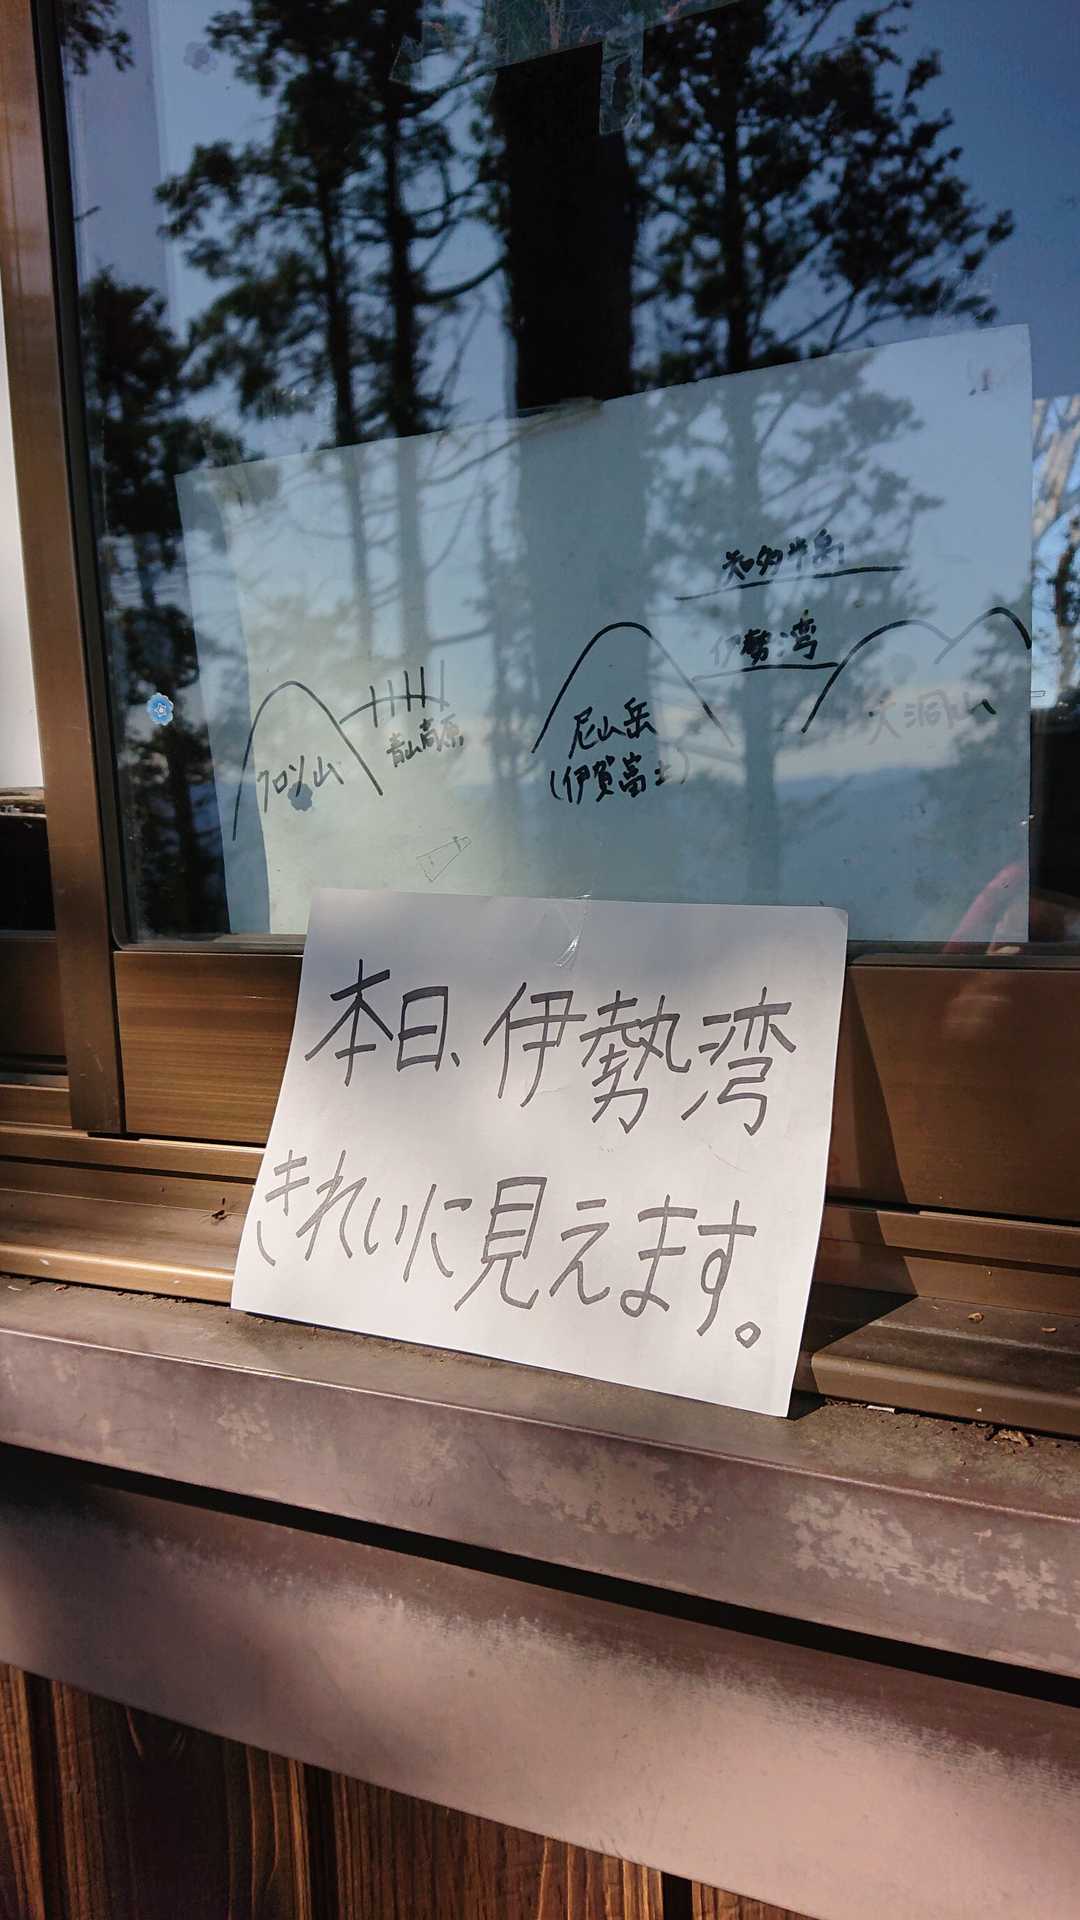 知多半島
伊勢湾
大洞山
尼山岳
(伊賀富士)
青山高原
クロソ山
本日、伊勢湾
きれいに見えます。